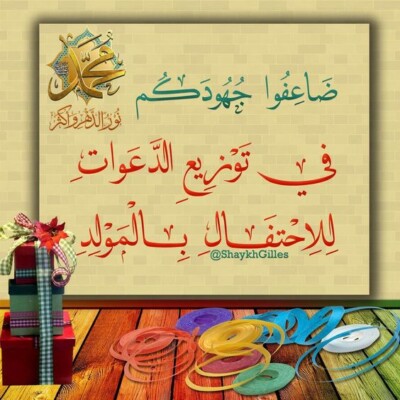 محمد
نور الدهر وأكثر
ضَاعِفُوا جُهُودَكُم
في تَوْزِيعِ الدَّعَوَاتِ
لِلِاحْتِفَالِ بِالْمَوْلِدِ
@ShaykhGilles